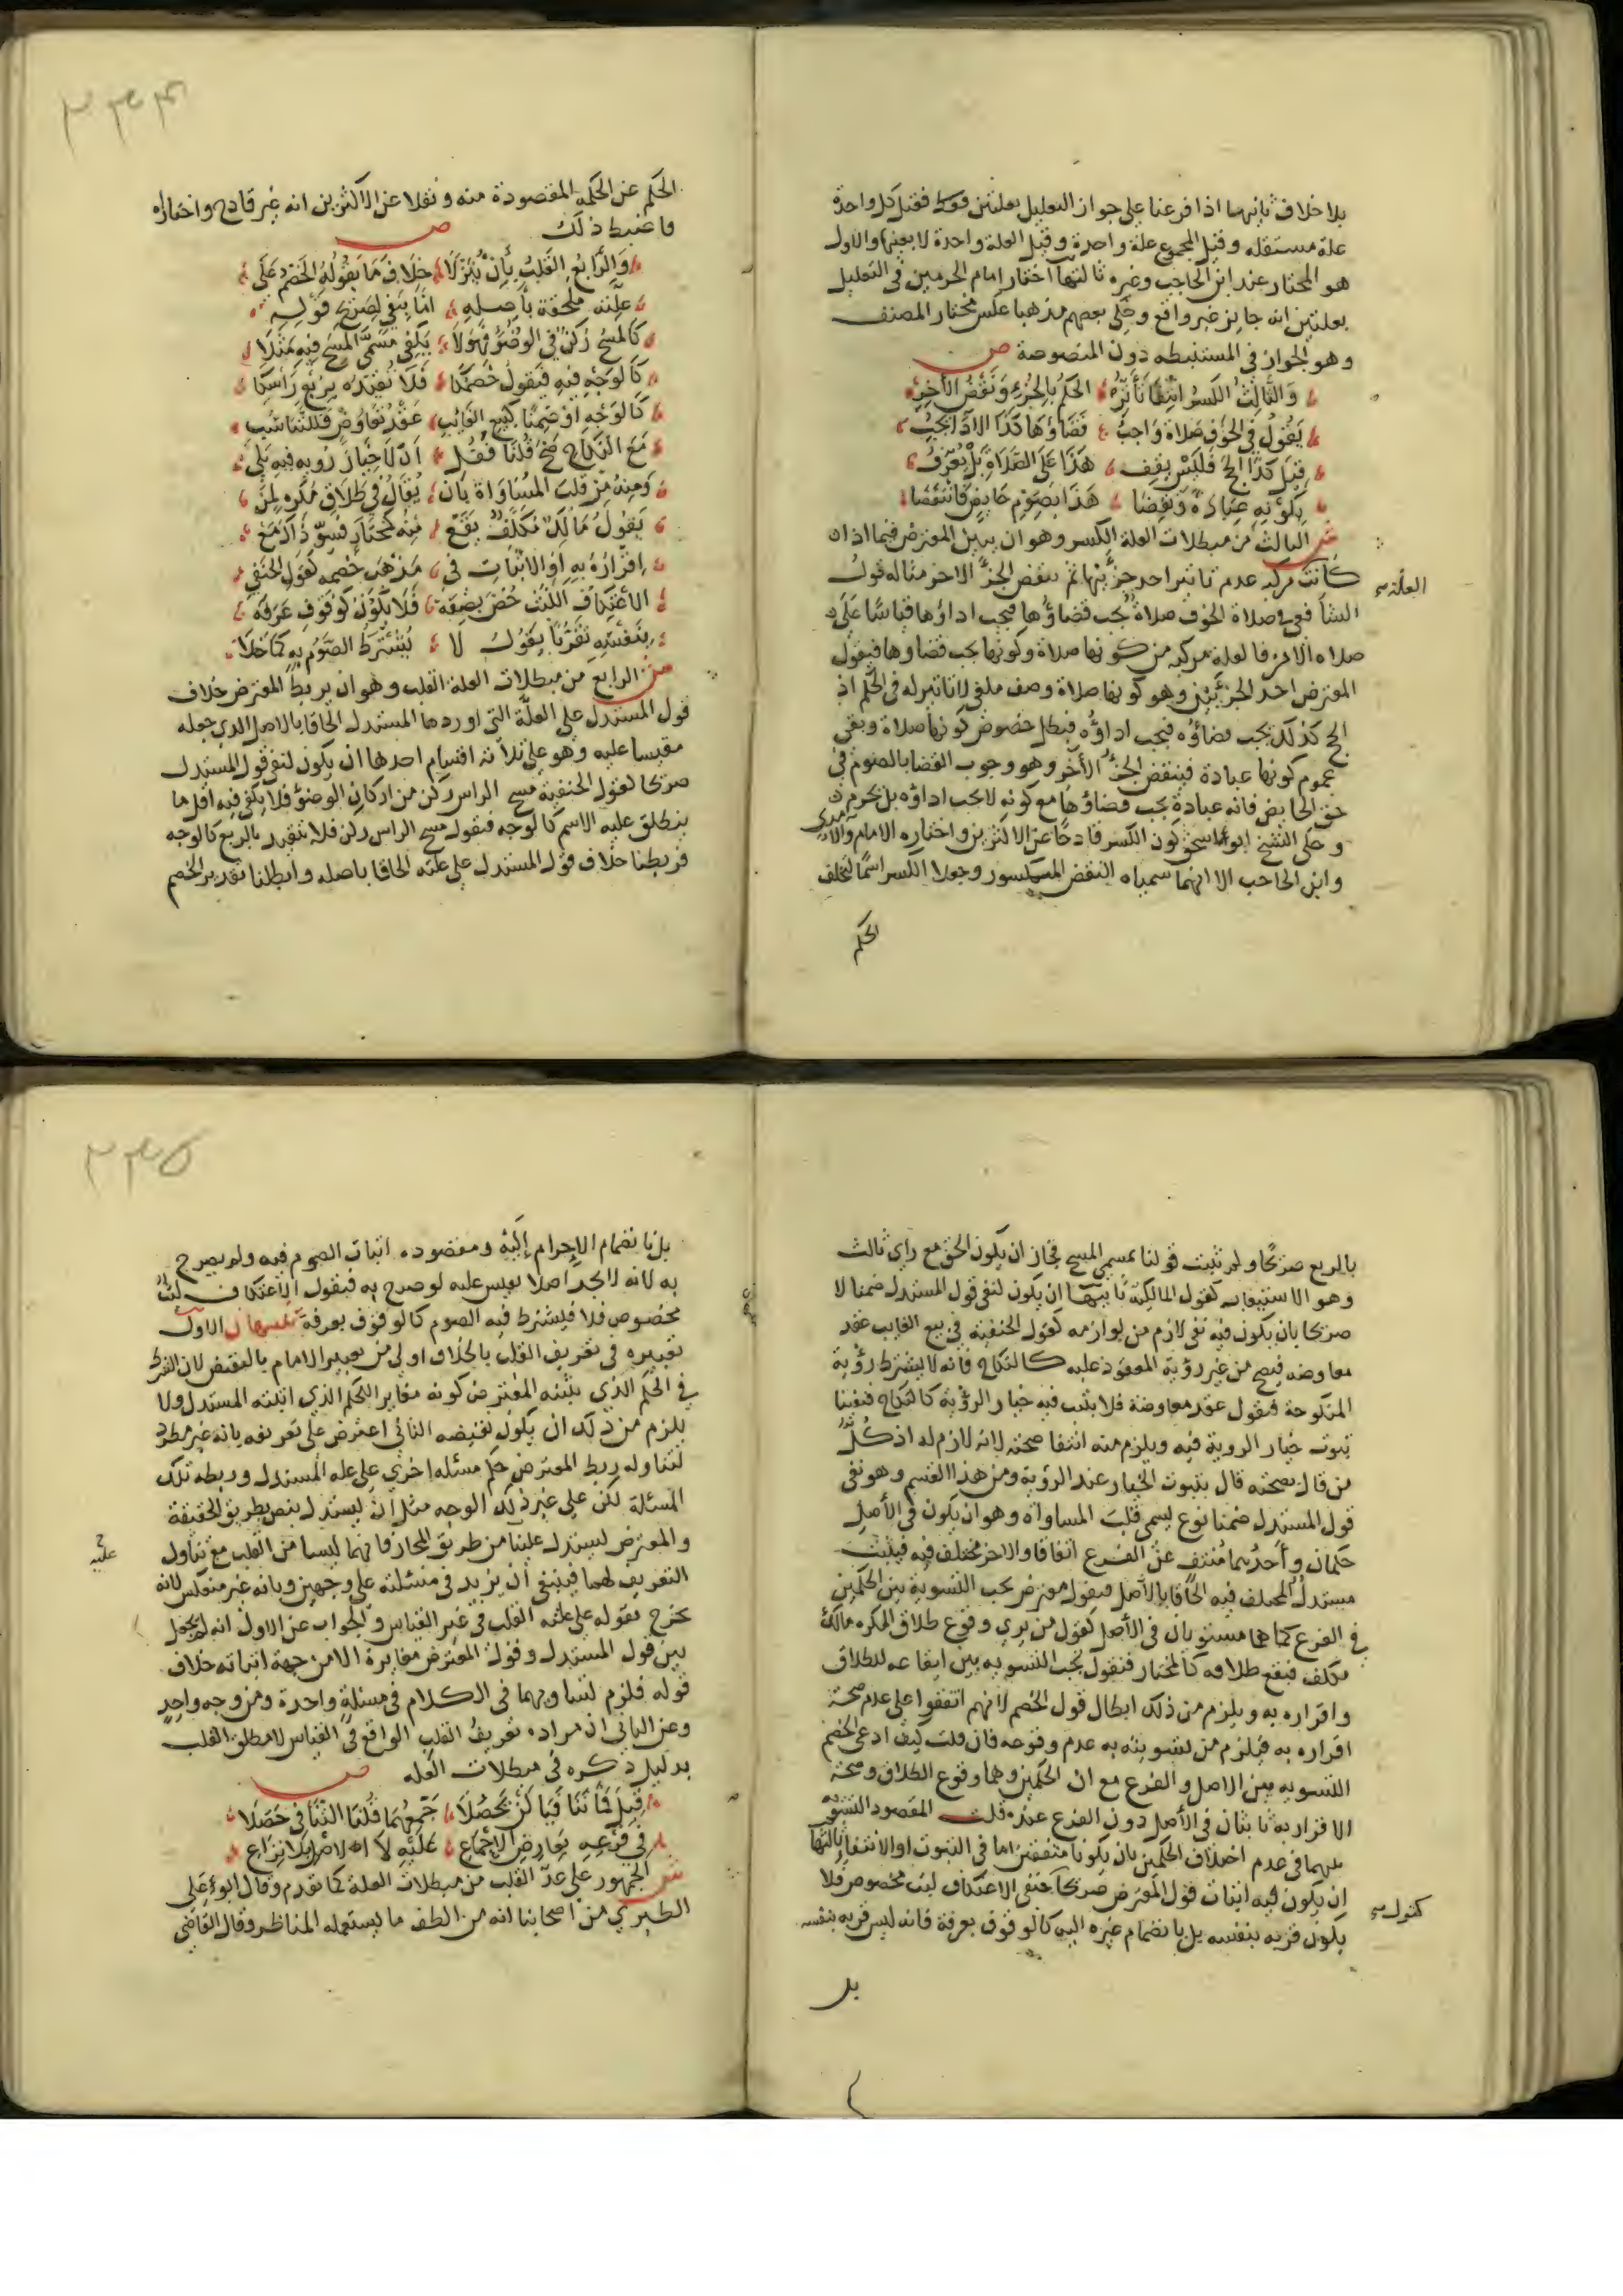 بلا خلاف ثانيهما اذا فرعنا على جواز التعليل بعلتين فوقا فقيل كل واحدة
علة مستقله وقيل المجموع علة واحدة وقيل العلة واحدة لا بعينها والاول
هو المختار عند ابن الحاجب وغيره ثالثها اختار امام الحرمين في التعليل
بعلتين انه جايز غير واقع وحكى بعضهم مذهبا عكس مختار المصنف
وهو الجواز في المستنبطه دون المنصوصة ص
وَالثَّالِثُ الكَسرُ انتِفَا تَأثِيرِ الحكمُ بالجُزءِ وَنَقضُ الأخِرِ
يَقُولُ فى الخوف صَلاة وَاجبُ قضاؤها كذا الادَا يجبُ
قِيلَ كذَا الحج فَلَيْسَ يقف هَذَا عَلَى الصَّلاة بَلْ يُعْرَفُ
بكونه عِبَادَةً وَنُقِضَا هَذَا بصَومِ حَايضٍ فَانتقضَا
ش الثالث من مبطلات العلة الكسر وهو ان يبين المعترض فيما اذا ان
كانت مركبه عدم تاثير احد جزئيها ثم ينقض الجزء الاخر مثاله قول
العلة
الشافعي في صلاة الخوف صلاة يجب قضاؤها فيجب اداؤها قياسا على
صلاه الامن فالعلة مركبه من كونها صلاة وكونها يجب قضاوها فيقول
المعترض احد الجزئين وهو كونها صلاة وصف ملغى لا تاثير له في الحكم اذ
الحج كذلك يجب قضاؤه فيجب اداؤه فبطل خصوص كونها صلاة وبقى
عموم كونها عبادة فينتقض الجزء الآخر وهو وجوب القضا بالصوم في
حق الحايض فانه عبادة يجب قضاؤها مع كونه لا يجب اداؤه بل يحرم
وحكى الشيخ ابو اسحق كون الكسر قادحا عن الاكثرين واختاره الامام والامدي
وابن الحاجب الا انهما سمياه النقض المكسور وجعلا الكسر اسمًا لتخلف
الحكم
٣٣٤
الحكم عن الحكمة المقصودة منه ونقلا عن الاكثرين انه غير قادح واختاراه
فاضبط ذلك ص
وَالرَّابعُ القَلبُ بِأَنْ يُنَزَّلَا خِلَاف مَا يَقُولُهُ الخَصْم عَلَى
عِلَّته ملحقة بأصلهِ امَّا ينفى لِصَرِيح قَوله
كَالمسْحُ رُكنٌ في الوضُوُّ فَهُوَ لَا يَكفى مُسَمَّى المَسْحِ فيه مَثَلا
كَالوَجْهِ فيهِ فَيَقول خَصْمُكَا فَلَا نُقَدِّرُه بِرُبْعِ رَاسِكَا
كَالوَجْهِ او ضِمْنًا كَبيعِ الغَائِبِ عَقْدُ تعَاوضٍ فَللتناسُب
مَعَ النكَاحِ صَحّ قُلنَا فقل اذ لا خيَارَ رُويه فيهِ يَلى
وَمِنهُ مِنْ قَلب المُسَاوَاة بأن يُقَالُ في طَلاقِ مُكرهٍ لِمَن
يَقولُ مَالكٌ مُكلَّفٌ يَقَع مِنه كمُختَارٍ فسوّ ذَاك مَع
اِقرَارُهُ بِه اوالاثبَاتِ فى مَذْهَب خَصْمِه كَقَولِ الحَنَفِى
الاعتكاف اللبْثُ خُصّ بصفَة فَلَا يَكونُ كَوُقوف عَرَفَه
بنَفسِهِ تَقَرُّبًا يقولُ لا يُشْتَرطُ الصَّوْمُ بِهِ كَمَا خَلَا
ش الرابع من مبطلات العلة القلب وهو ان يربط المعترض خلاف
قول المستدل على العلَّة التي اوردها المستدل الحاقا بالاصل الذي جعله
مقيسا عليه وهو على ثلاثه اقسام احدها ان يكون لنفى قول المستدل
صريحا كقول الحنفية مسح الراس ركن من اركان الوضوء فلا يكفى فيه اقل ما
ينطلق عليه الاسم كالوجه فيقول مسح الراس ركن فلا يتقدر بالربع كالوجه
فربطنا خلاف قول المستدل على علته الحاقا باصله وابطلنا تقدير الخصم
بالربع صريحًا ولم تثبت قولنا بمسمى المسح فجاز ان يكون الحق مع راي ثالث
وهو الاستيعاب كقول المالكية ثانيها ان يكون لنفى قول المستدل ضمنا لا
صريحا بان يكون فيه نفى لازم من لوازمه كقول الحنفية في بيع الغايب عقد
معاوضه فيصح من غير رؤية المعقود عليه كالنكاح فانه لا يشترط رؤية
المنكوحة فيقول عقد معاوضة فلا يثبت فيه خيار الرؤية كالنكاح فنفينا
ثبوت خيار الروية فيه ويلزم منه انتفا صحته لانه لازم له اذ كلّ
من قال بصحته قال بثبوت الخيار عند الرؤية ومن هذا القسم وهو نفى
قول المستدل ضمنا نوع يسمى قلبَ المساواة وهو ان يكون في الأصل
حكمان واحدهما مُنتفٍ عن الفرع اتفاقا والاخر مختلف فيه فيثبت
مستدلّ المختلف فيه الحاقا بالاصل فيقول معترض يجب التسوية بين الحكمين
في الفرع كما هما مستويان في الأصل كقول من يرى وقوع طلاق المكره مالك
مكلف فيقع طلاقه كالمختار فنقول يجب التسويه بين ايقاعه للطلاق
واقراره به ويلزم من ذلك ابطال قول الخصم لانهم اتفقوا على عدم صحة
اقراره به فيلزم من تسويته به عدم وقوعه فان قلت كيف ادعى الخصم
التسويه بين الاصل والفرع مع ان الحكمين وهما وقوع الطلاق وصحة
الاقرار به ثابتان في الأصل دون الفرع عنده قلت المقصود التسويه
بينهما في عدم اختلاف الحكمين بان يكونا متفقين اما في الثبوت او الانتفا ثالثها
ان يكون فيه اثبات قول المعترض صريحا كحنفى الاعتكاف لبث مخصوص فلا
كقول
يكون قربه بنفسه بل بانضمام غيره اليه كالوقوف بعرفة فانه ليس قربه بنفسه
بل
٣٣٥
بل بانضمام الاحرام إليه ومقصوده اثبات الصوم فيه ولم يصرح
به لانه لا يجد اصلا يقيس عليه لو صرح به فيقول الاعتكاف لبث
مخصوص فلا يشترط فيه الصوم كالوقوف بعرفة تنبيهان الاول
تعبيره في تعريف القلب بالخلاف اولى من تعبير الامام بالنقيض لان الشرط
في الحكم الذي يثبته المعترض كونه مغاير للحكم الذي اثبته المستدل ولا
يلزم من ذلك ان يكون نقيضه الثاني اعترض على تعريفه بانه غير مطرد
لتناوله ربط المعترض حكم مسئله اخرى على علة المستدل وربطه تلك
المسئلة لكن على غير ذلك الوجه مثل ان يستدل بنص بطريق الحقيقة
والمعترض يستدل علينا من طريق المجاز فانهما ليسا من القلب مع تناول
عليه
التعريف لهما فينبغى أن يزيد في مسئلته على وجهين وبانه غير منعكس لانه
يخرج بقوله على علته القلب في غير القياس والجواب عن الاول انه لم يجعل
بين قول المستدل وقول المعترض مغايرة الا من جهة اثباته خلاف
قوله فلزم تساويهما في الكلام في مسئلة واحدة ومن وجه واحد
وعن الثاني ان مراده تعريف القلب الواقع في القياس لا مطلق القلب
بدليل ذكره في مبطلات العله ص
قِيلَ تَنَافيَا كَنْ يَحْصُلَا جَمْعُهُمَا قُلنَا التَّنَافى حَصَلَا
في فرْعهِ بعارض الاجماع عَلَيهِ لا الاصل بلا نزاع
ش الجمهور على عدّ القلب من مبطلات العلة كما تقدم وقال ابو على
الطبري من اصحابنا انه من الطف ما يستعمله المناظر وقال القاضى